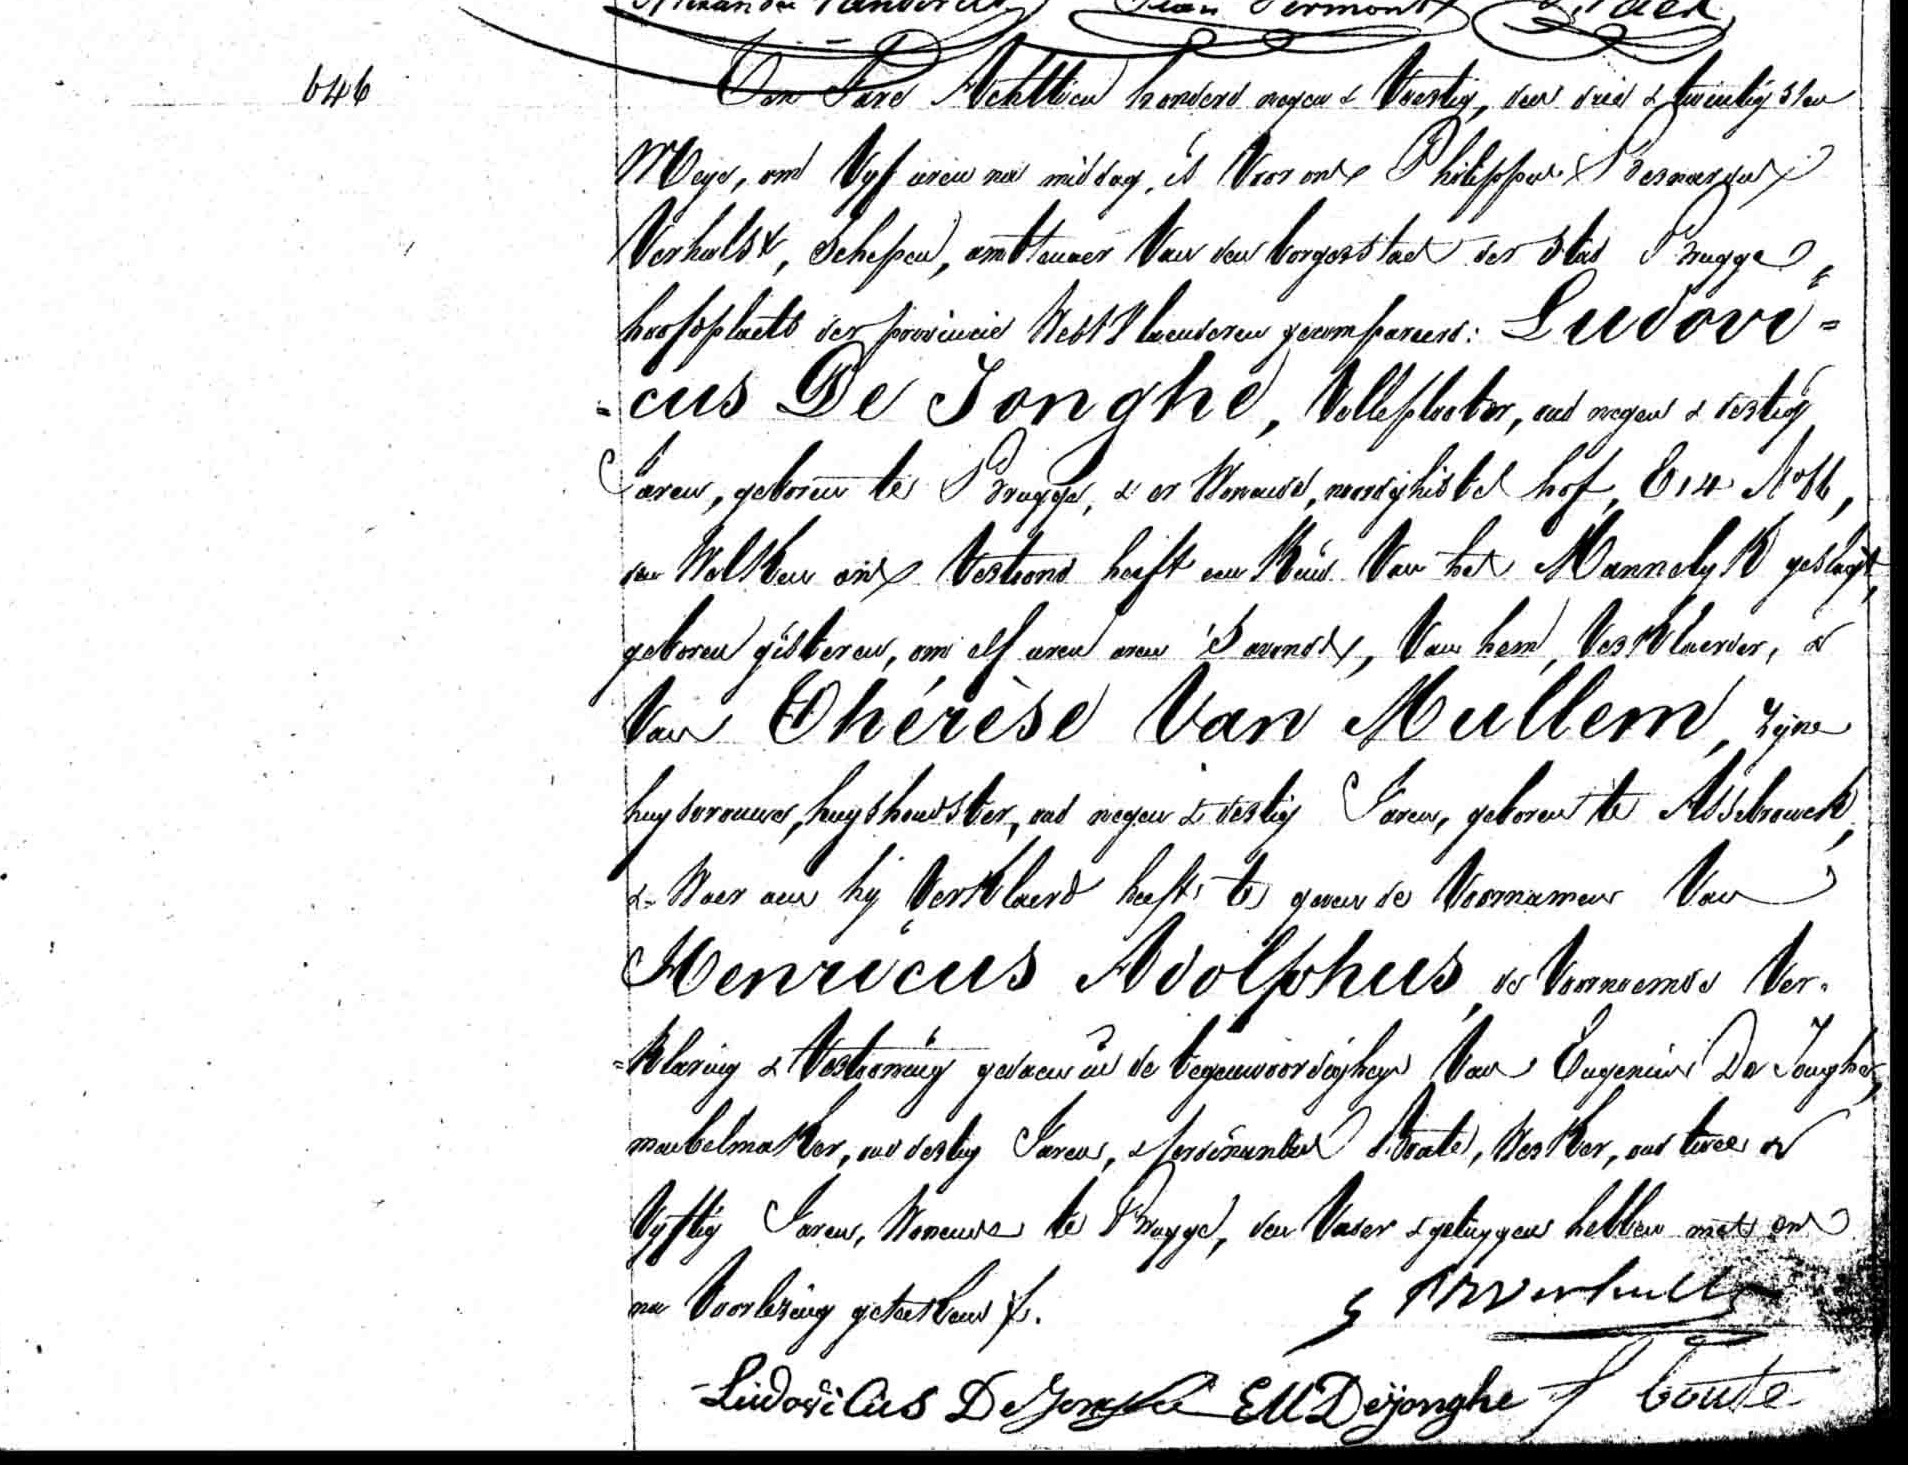 646
Den Jare Achttien honderd negen & Veertig, den drie & twintigsten
Meye, om Vyf uren na middag, is Voor ons Philippus Bernardus
Verhulst, Schepen, ambtenaer Van den borgerstaet der stad Brugge,
hoofdplaets der provincie West Vlaenderen gecompareerd: Ludovi=
=cus De Jonghe, Velleploter, oud negen & dertig
Jaren, geboren te Brugge, & er Wonende, noordghistel hof, E14 No
den Welken ons Vertoond heeft een Kind Van het Mannelyk geslagt,
geboren gisteren, om elf uren 's avonds, Van hem, Verklaerder, &
Van Thérèse Van Mullem, zyne
huysvrouwe, huyshoudster, oud negen & dertig Jaren, geboren te Assebrouck,
& Waer aen hij Verklaerd heeft te geven de Voornamen Van
Henricus Adolphus, de Voornoemde Ver=
=klaring & Vertooning gedaen in de tegenwoordigheyd Van Eugenius De Jonghe,
meubelmaker, oud dertig Jaren, & ferdinandus Werker, oud twee &
Vyftig Jaren, Wonende te Brugge, den Vader & getuygen hebben met ons
na Voorlezing geteekend.
Verhulst
Ludovicus De Jonghe EM Dejonghe f Coute